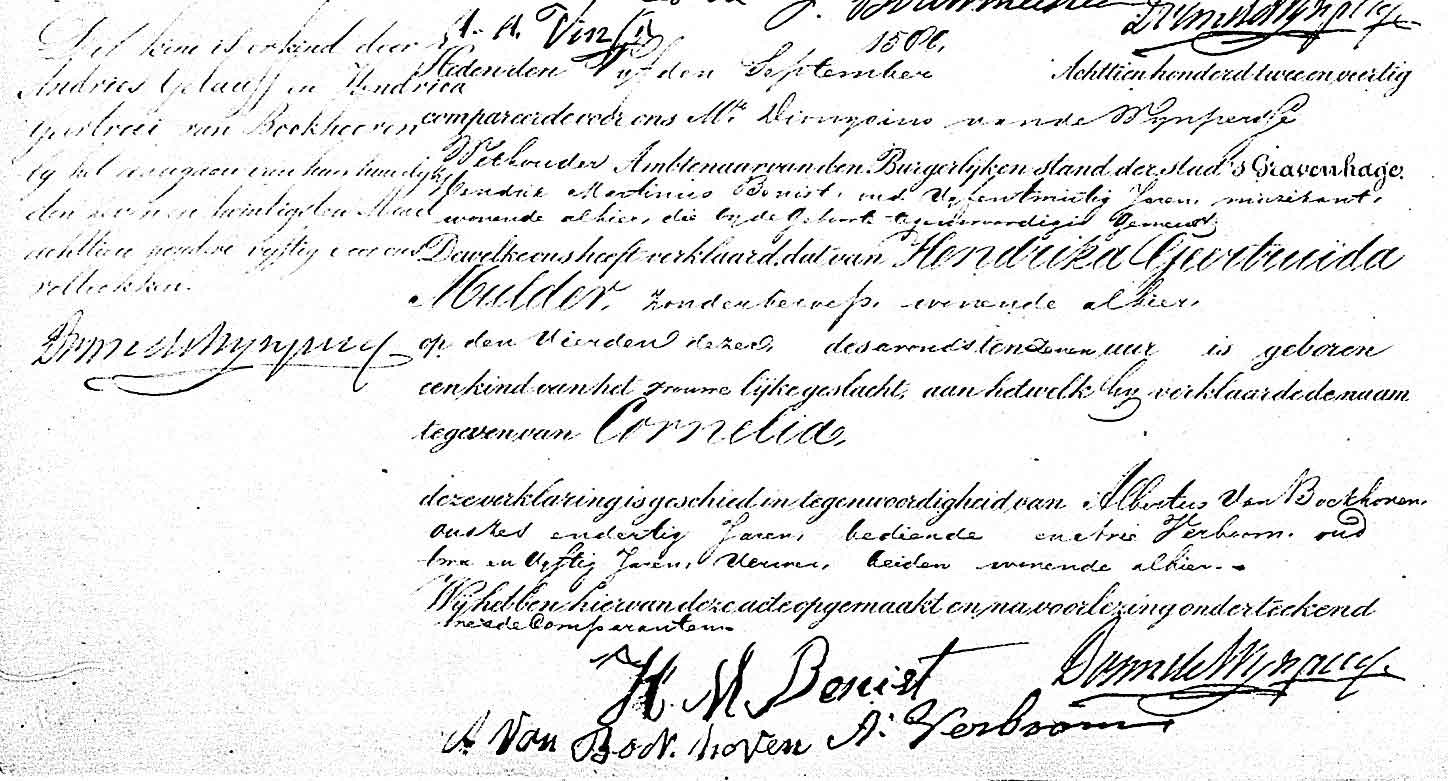 A. A. Vin
1508.
Dit kind is erkend door
Andries Gelauff en Hendrica
van Bockhoven
by het aangaan van hun huwelijk
den zeven en twintigsten Maart
achttien honderd vyftig voor ons
voltrokken.
Heden den Vyfden September Achttien honderd twee en veertig
compareerde voor ons Mr. Dionysius van de Wynpersse
Wethouder Ambtenaar van den Burgerlijken stand der stad 's Gravenhage.
Hendrik Martinus Bonist, oud Jaren, muzikant,
wonende alhier, die by de Geboorte tegenwoordig is Geweest
Dewelke ons heeft verklaard, dat van Hendrika Geertruida
Mulder, zonder beroep, wonende alhier,
op den Vierden dezer, des avonds ten Zeven uur is geboren
een kind van het vrouwelijke geslacht, aan hetwelk hy verklaarde de naam
te geven van Cornelia,
deze verklaring is geschied in tegenwoordigheid van Albertus Van Bockhoven,
oud zes en dertig Jaren, bediende en Arie Verboom, oud
twee en Vyftig Jaren, Verwer, beiden wonende alhier.-
Wij hebben hiervan deze acte opgemaakt en, na voorlezing onderteekend
met de Comparanten.
H. M. Bonist
A Van Bockhoven A. Verboom